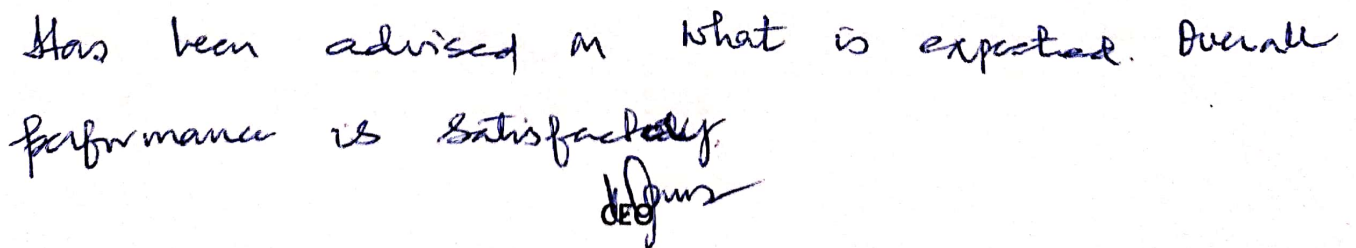 Has been advised on what is expected. Overall
performance is satisfactory.
CEO